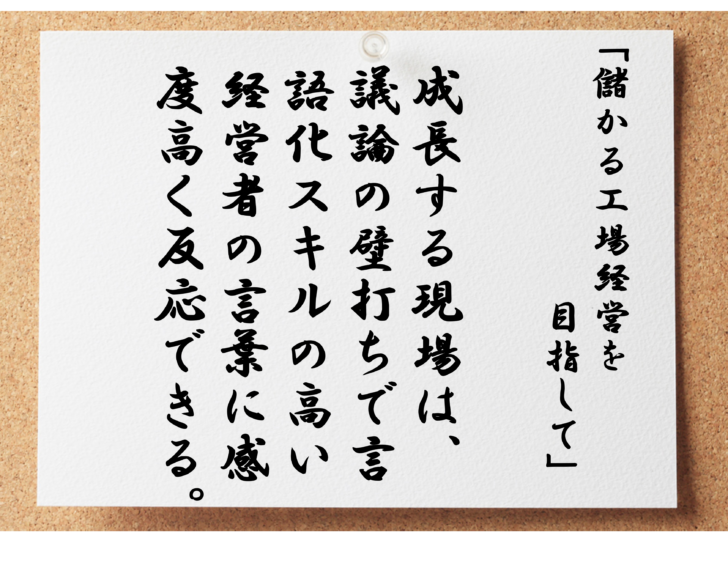 「儲かる工場経営を
目指して」
成長する現場は、
議論の壁打ちで言
語化スキルの高い
経営者の言葉に感
度高く反応できる。